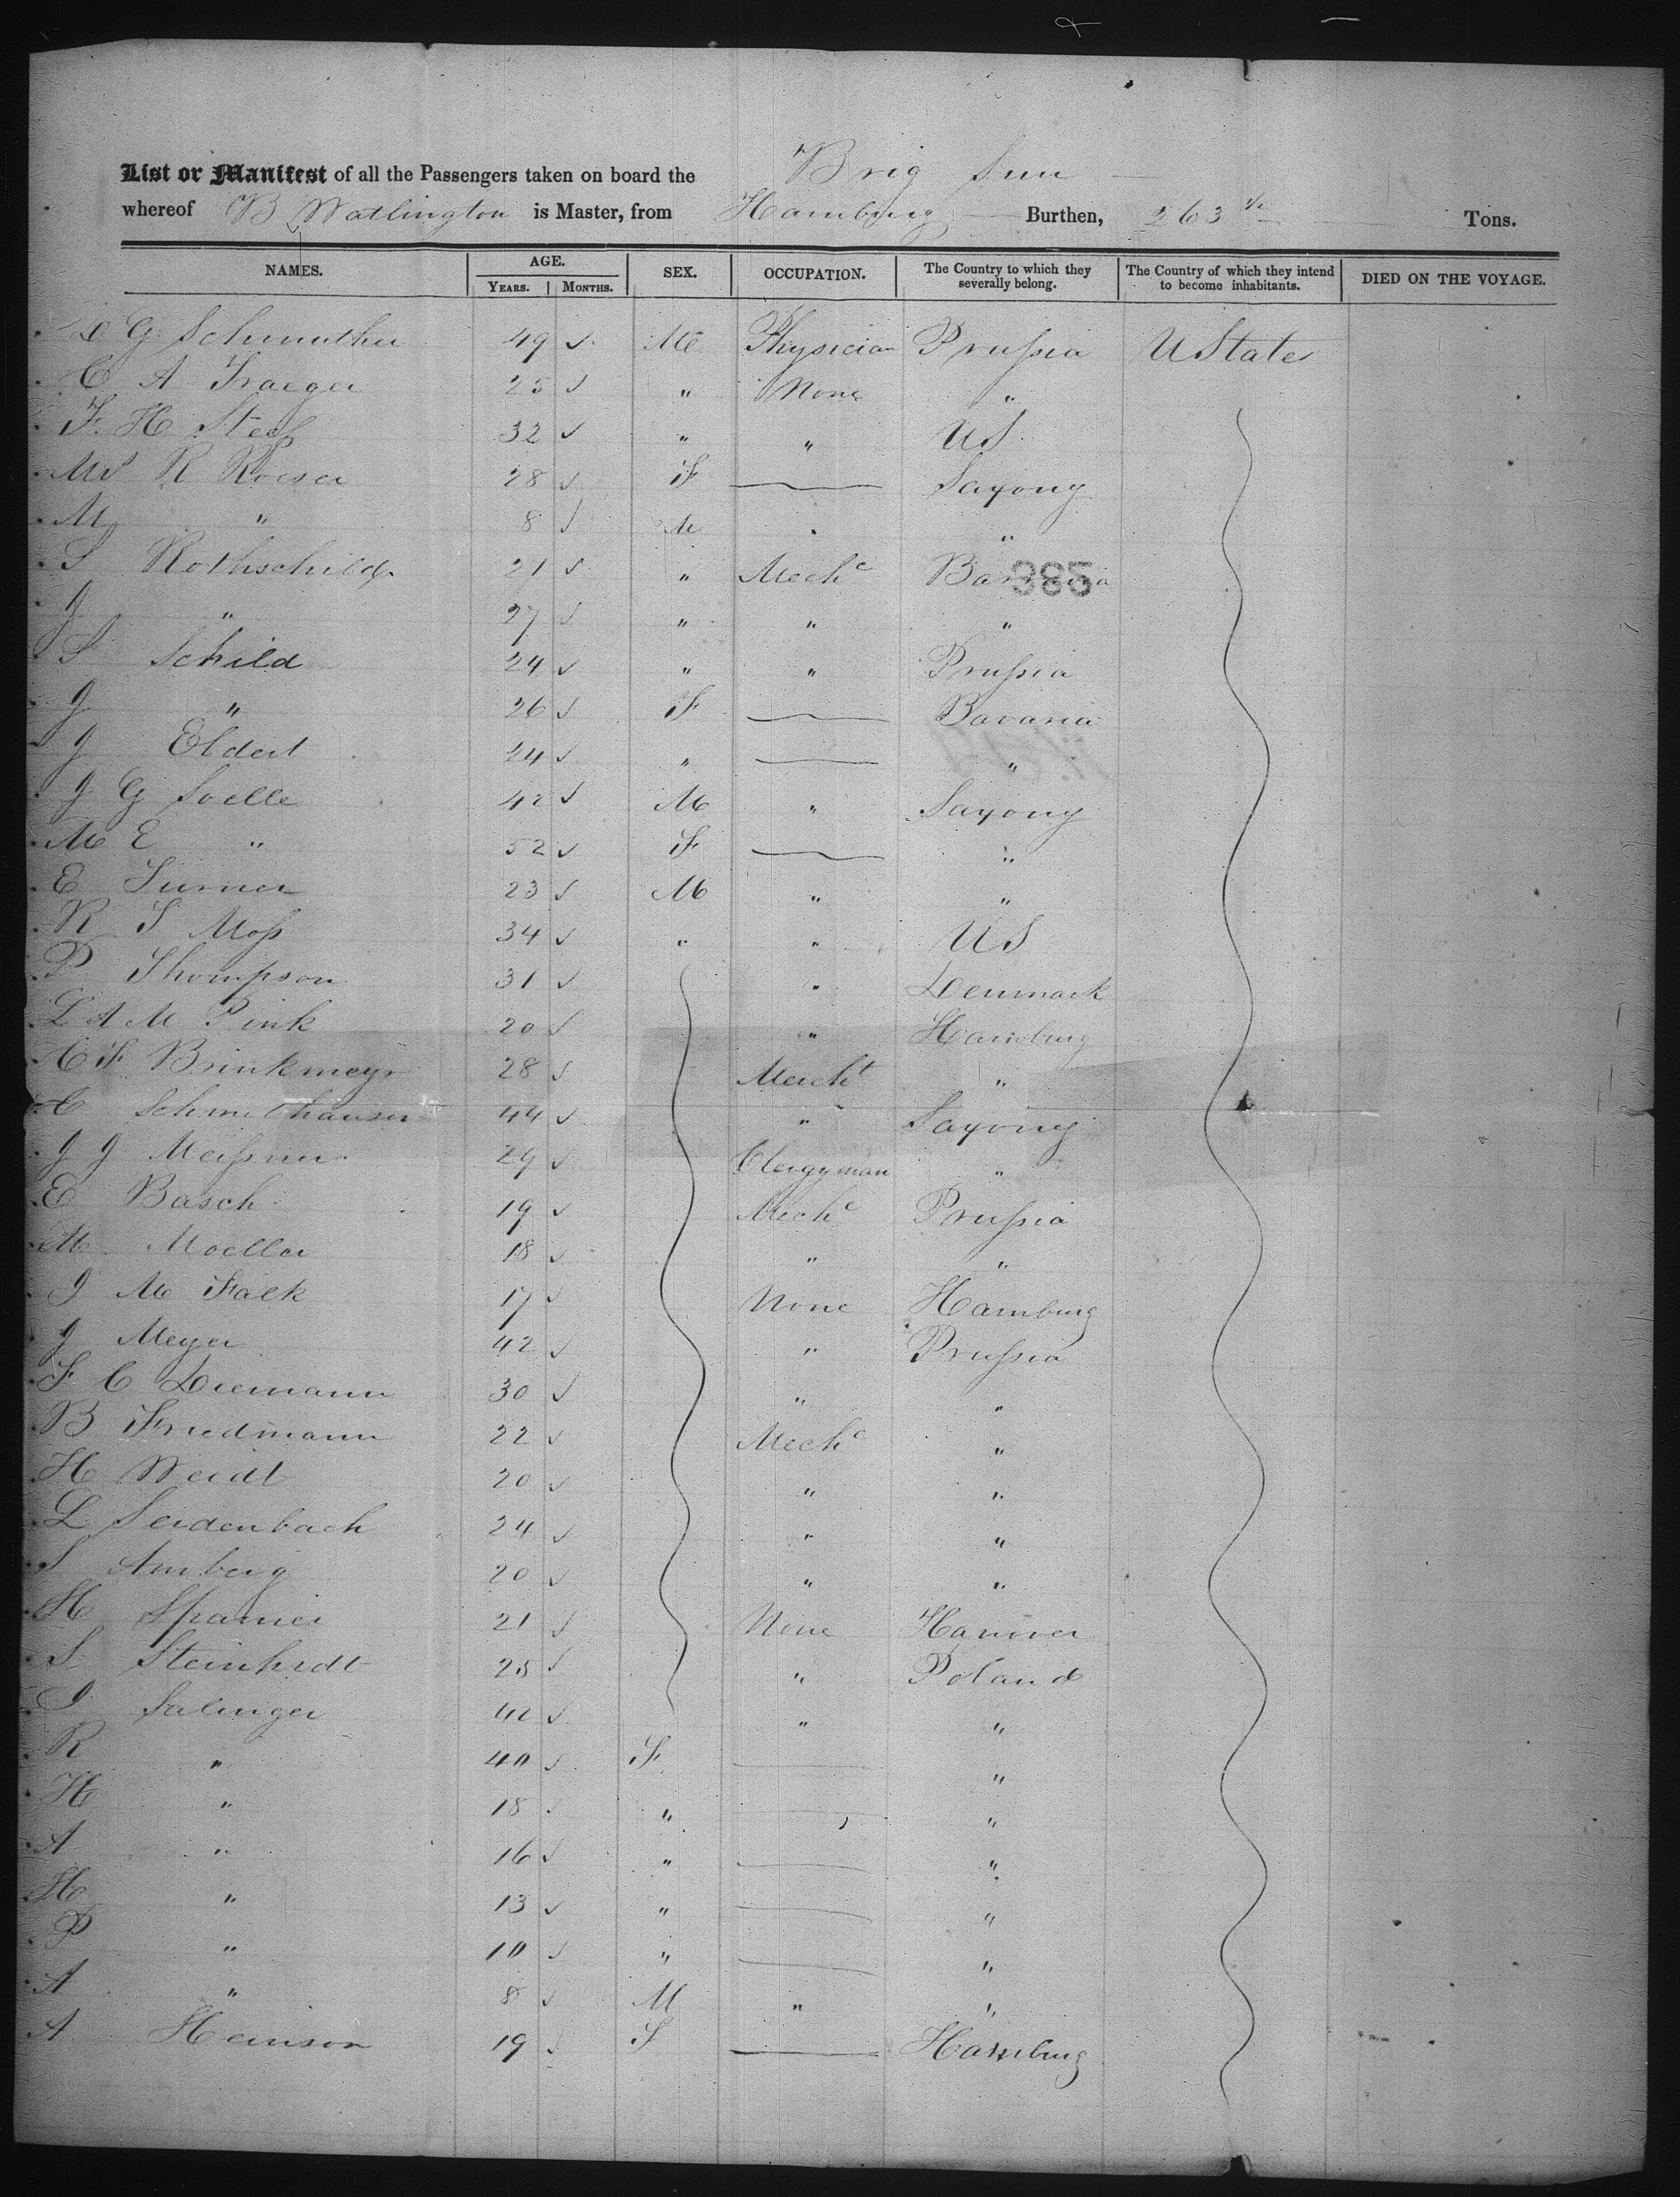 List or Manifest of all the Passengers taken on board the Brig Sun
whereof B Watlington is Master, from Hamburg Burthen, 263 Tons.
NAMES. AGE. YEARS. MONTHS. SEX. OCCUPATION. The Country to which they severally belong. The Country of which they intend to become inhabitants. DIED ON THE VOYAGE.
G 49 ✓ M Physician Prussia U State
C A Traeger 25 ✓ " None "
F. H 32 ✓ " " US
Ms R Roeser 28 ✓ F — Saxony
M " 8 ✓ M "
S Rothschild 21 ✓ " Mechc Bavaria
385
J " 27 ✓ " " "
S Schild 24 ✓ " " Prussia
J " 26 ✓ F — Bavaria
J Eldert 24 ✓ " — "
J G Soelle 42 ✓ M " Saxony
M E " 52 ✓ F — "
E Turner 23 ✓ M " "
R S Moss 34 ✓ " " US
P Thompson 31 ✓ " Denmark
L A M Pink 20 ✓ " Hamburg
F Brinkmeyr 28 ✓ Mercht "
C Schmelhauser 44 ✓ " Saxony
J J Meissner 29 ✓ Clergyman "
E Basch 19 ✓ Mechc Prussia
M Moeller 18 ✓ " "
J M Falk 17 ✓ None Hamburg
J Meyer 42 ✓ " Prussia
F C Diemann 30 ✓ " "
B Friedmann 22 ✓ Mechc "
H Weidt 20 ✓ " "
L Seidenbach 24 ✓ " "
S Amberg 20 ✓ " "
H Spanier 21 ✓ None Hanover
S 25 ✓ " Poland
J Salinger 42 ✓ " "
R " 40 ✓ F — "
H " 18 ✓ " — "
A " 16 ✓ " — "
H " 13 ✓ " — "
P " 10 ✓ " — "
A " 8 ✓ M " "
A Heinson 19 ✓ F — Hamburg